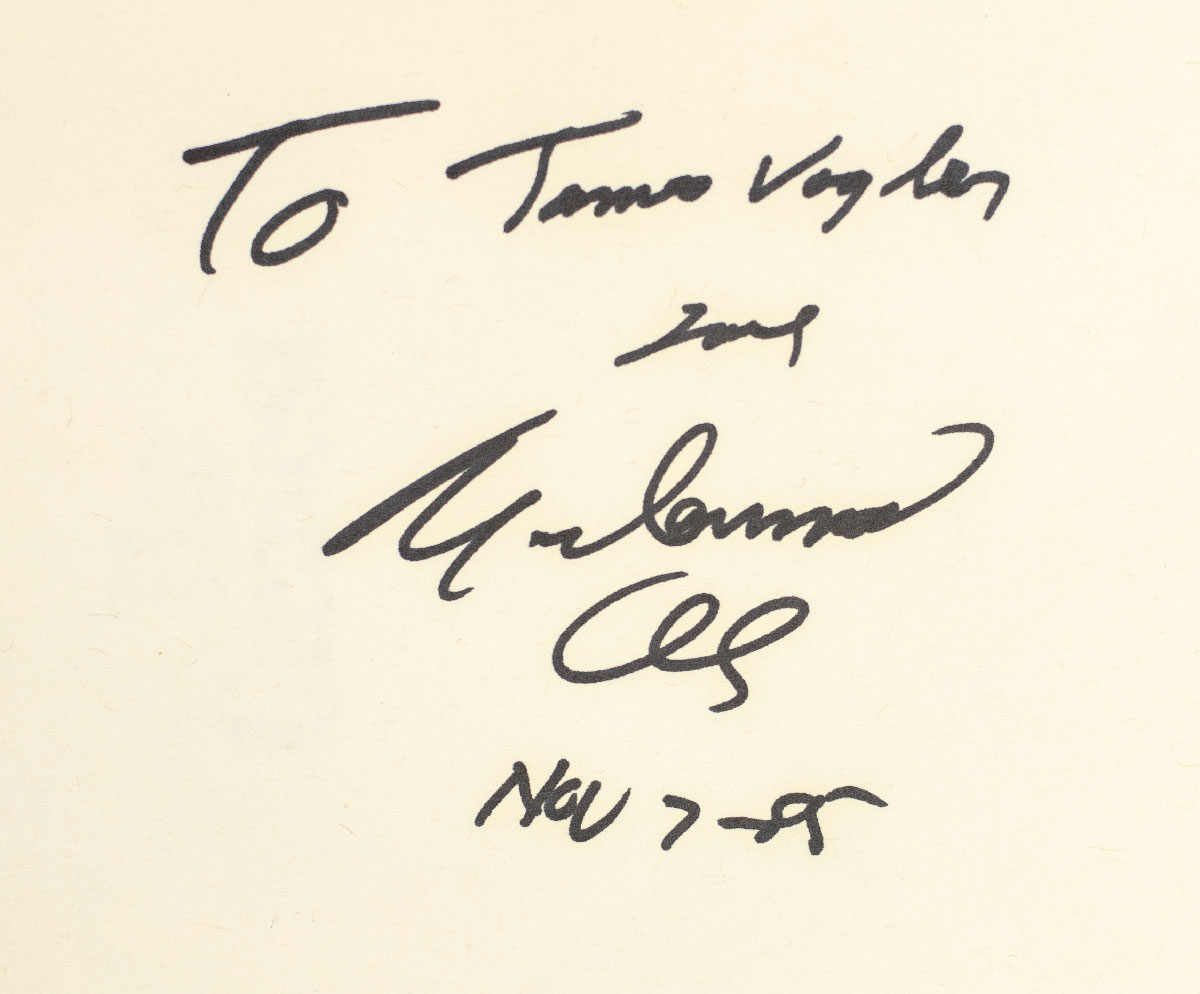 To James Vogler
Love
Muhammad
Ali
Nov 7-85